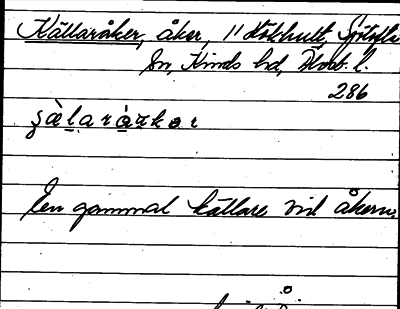 Källaråker, åker, 11 Hökhult, Sjötofta
Sn, Kinds hd, Älvsb. l.
286
En gammal källare vid åkern.